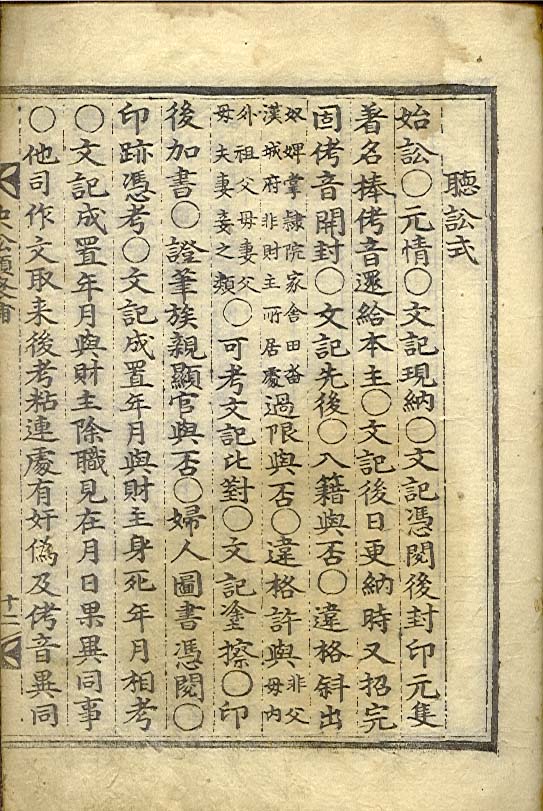 聽訟式
始訟○元情○文記現納○文記憑閱後封印元隻
著名捧侤音還給本主○文記後日更納時又招完
固侤音開封○文記先後○入籍與否○違格斜出
奴婢掌隷院家舍田畓
漢城府非財主所居處
過限與否○違格許與
非父
母內
外祖父母妻父
母夫妻妾之類
○可考文記比對○文記塗擦○印
後加書○證筆族親顯官與否○婦人圖書憑閱○
印跡憑考○文記成置年月與財主身死年月相考
○文記成置年月與財主除職見在月日果異同事
○他司作文取来後考粘連處有奸偽及侤音異同
十二